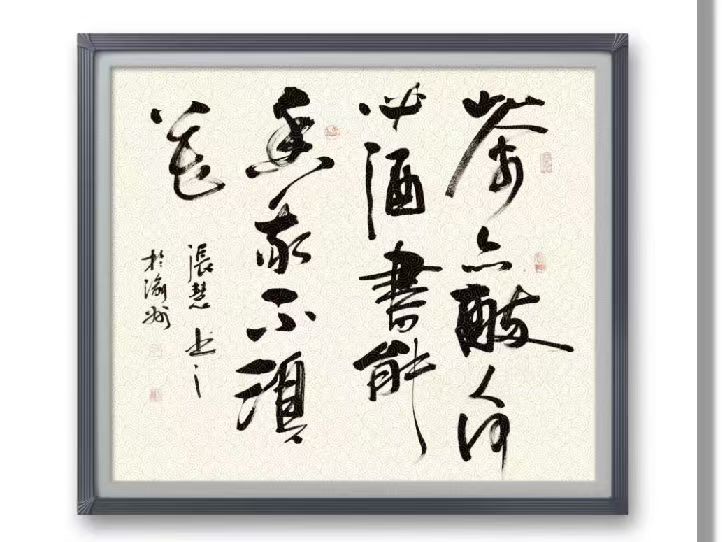 茶亦醉人何
必酒書能
香我不須
花
張慧书之
於渝州